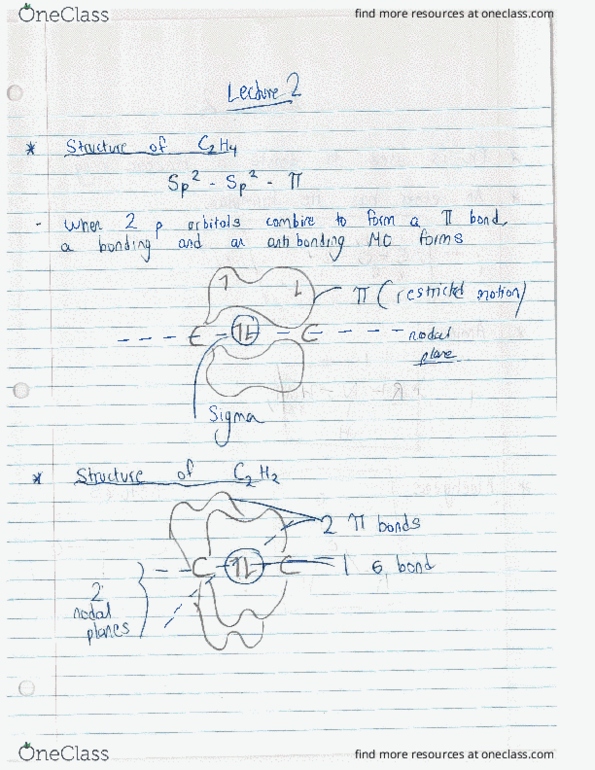 OneClass
find more resources at oneclass.com
Lecture 2
* Structure of C2H4
Sp2 - Sp2 - π
- When 2 p orbitals combine to form a π bond
a bonding and an antibonding MO forms
1 1 π (restricted motion)
C 1L C nodal
plane
Sigma
* Structure of C2H2
2 π bonds
C 1L C 1 σ bond
2
nodal
planes
OneClass
find more resources at oneclass.com